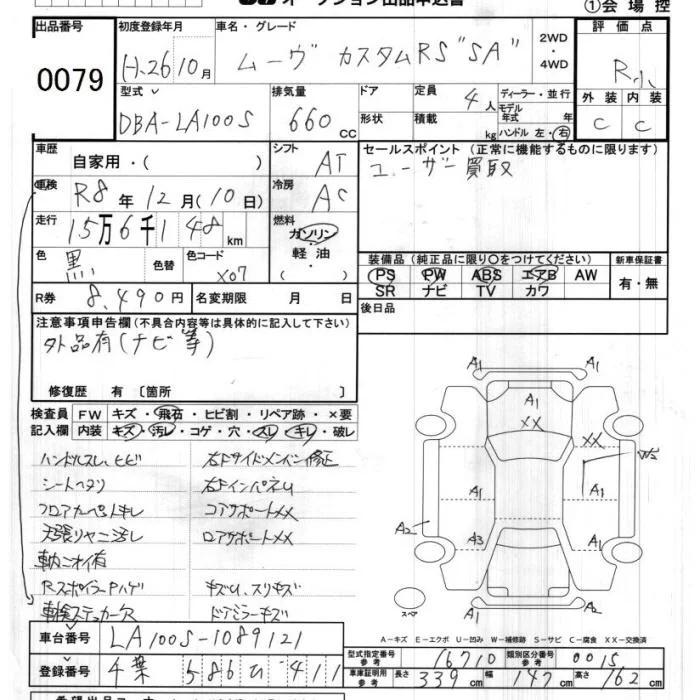 ①会場控
出品番号
0079
初度登録年月
H.26 10月
車名・グレード
ムーヴ カスタムRS "SA"
2WD
・
4WD
評価点
R小
外装 内装
C C
型式
DBA-LA100S
排気量
660 CC
ドア
形状
定員
4人
積載 kg
ディーラー・並行
モデル
年式 年
ハンドル 左・右
車歴
自家用・( )
シフト
AT
車検
R8年12月(10日)
冷房
AC
走行
15万6千148km
燃料
ガソリン
・
軽油
( )
色
黒
色替
色コード
X07
R券
8,490円
名変期限 月 日
セールスポイント(正常に機能するものに限ります)
ユーザー買取
装備品(純正品に限り○をつけてください)
PS PW ABS エアB AW
SR ナビ TV カワ
新車保証書
有・無
後日品
注意事項申告欄(不具合内容等は具体的に記入して下さい)
外品有(ナビ等)
修復歴 有〔箇所 〕
検査員
記入欄
FW キズ・飛石・ヒビ割・リペア跡・×要
内装 キズ・汚レ・コゲ・穴・スレ・キレ・破レ
ハンドルスレ、ヒビ
シートヘタリ
フロアカーペットキレ
天張リヤニ汚レ
車内ニオイ有
RスポイラーPハゲ
車検ステッカー欠
右Fサイドメンバー修正
右FインパネU
コアサポートXX
ロアサポートXX
キズU、スリキズ
ドアミラーキズ
A1 A1
A1
XX
XX
A1 A1
A2 A3 A1
A1 A2
スペア
A-キズ E-エクボ U-凹み W-補修跡 S-サビ C-腐食 XX-交換済
車台番号
LA100S-1089121
登録番号
千葉 586 ひ 411
型式指定番号
参考
16710
類別区分番号
参考
0015
車庫証明用
参考
長さ 339cm 幅 147cm 高さ 162cm